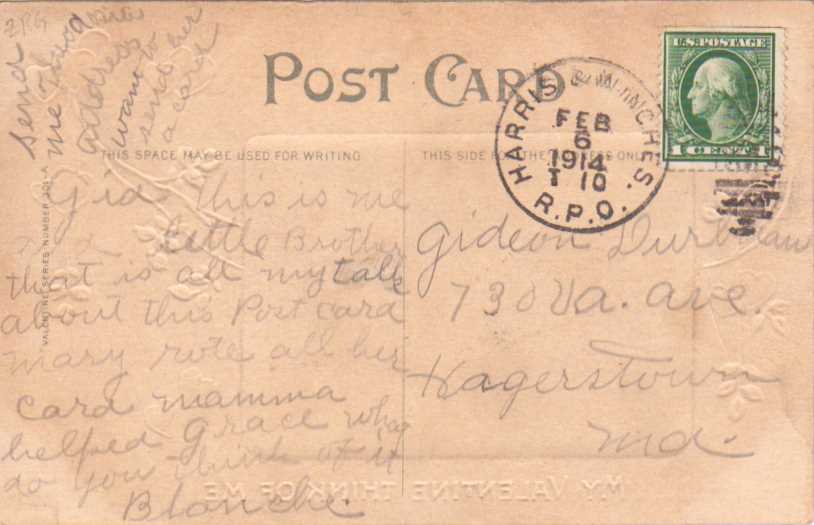 2RG
send
me
address
want to
send her
a card
POST CARD
THIS SPACE MAY BE USED FOR WRITING
THIS SIDE FOR THE ADDRESS ONLY
U.S. POSTAGE
1 CENT 1
HARRIS & WINCHES.
FEB
6
1914
T 10
R.P.O.
VALENTINE SERIES NUMBER 201-A
Gid this is me
x x little Brother
that is all my talk
about this Post card
mary rote all her
card mamma
helped grace what
do you think of it
Blanche.
Gideon
730 Va. ave.
Hagerstown
Md.
MY VALENTINE THINK OF ME